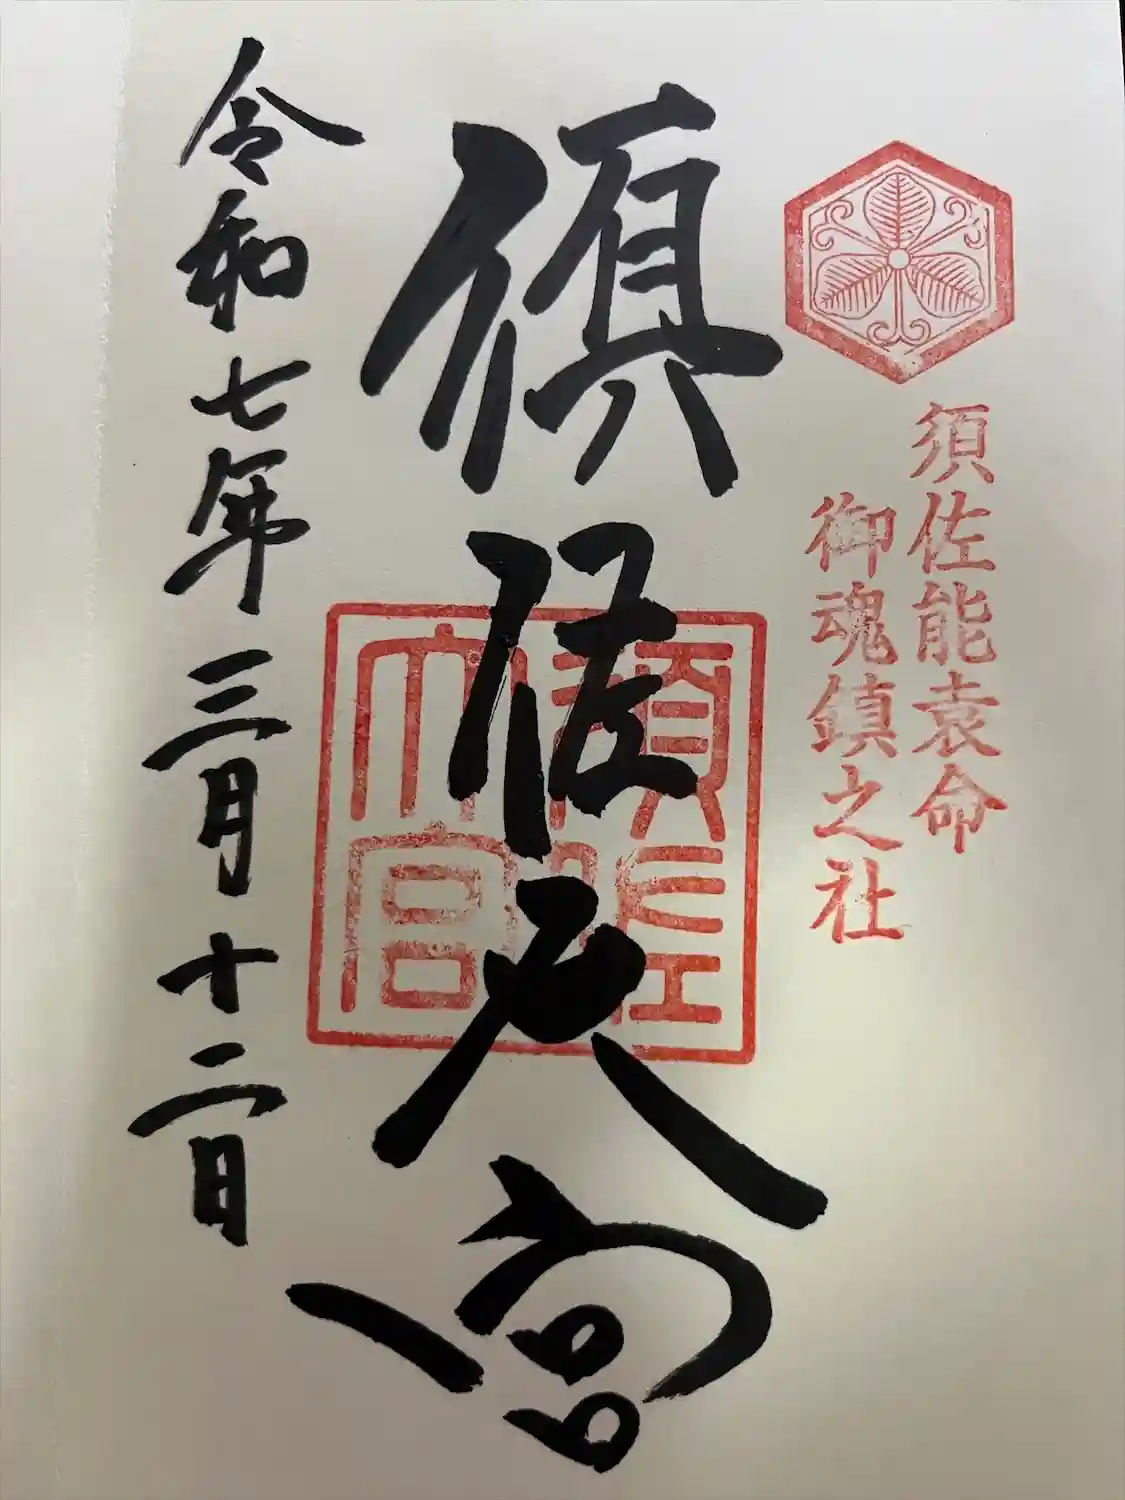 須佐能袁命
御魂鎮之社
須佐大宮
須佐大宮
令和七年三月十二日